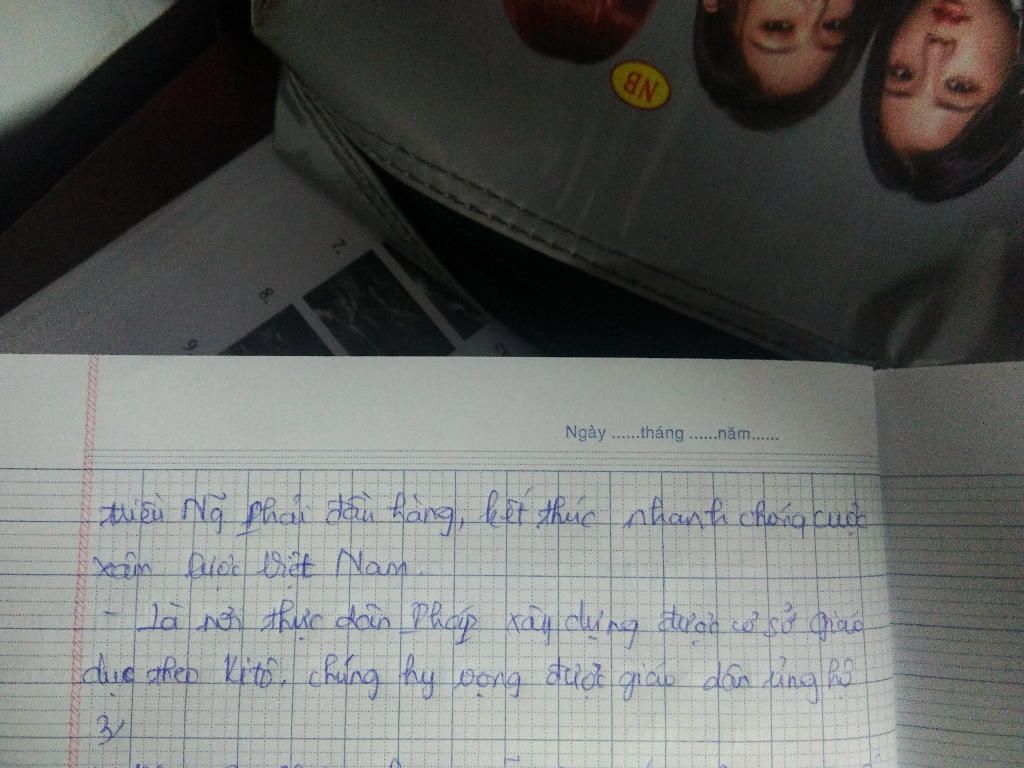 NB
7.
8.
9.
Ngày ......tháng ......năm......
triều Ng̃ phải đầu hàng, kết thúc nhanh chóng cuộc
xâm lược Việt Nam.
- Là nơi thực dân Pháp xây dựng được cơ sở giáo
dục theo Kitô. chúng hy vọng được giáo dân ủng hộ
3/